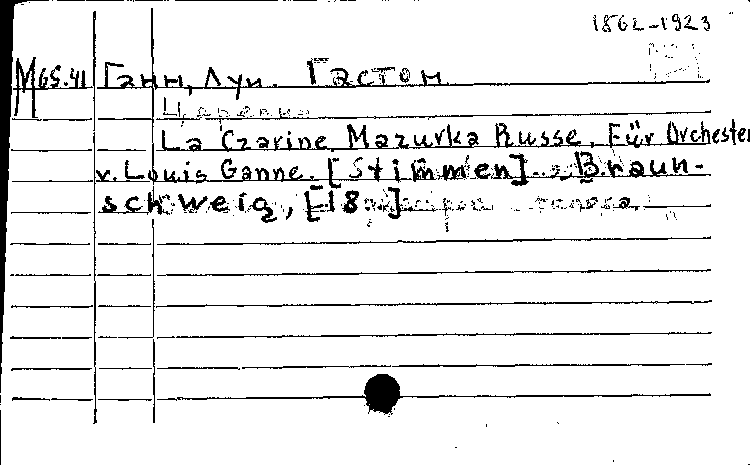 1862-1923
М65.41 Ганн, Луи. Гастон
Царевна
La Czarine Mazurka Russe. Für Orchester
v. Louis Ganne. [Stimmen] Braun-
schweig, [18 ] голоса